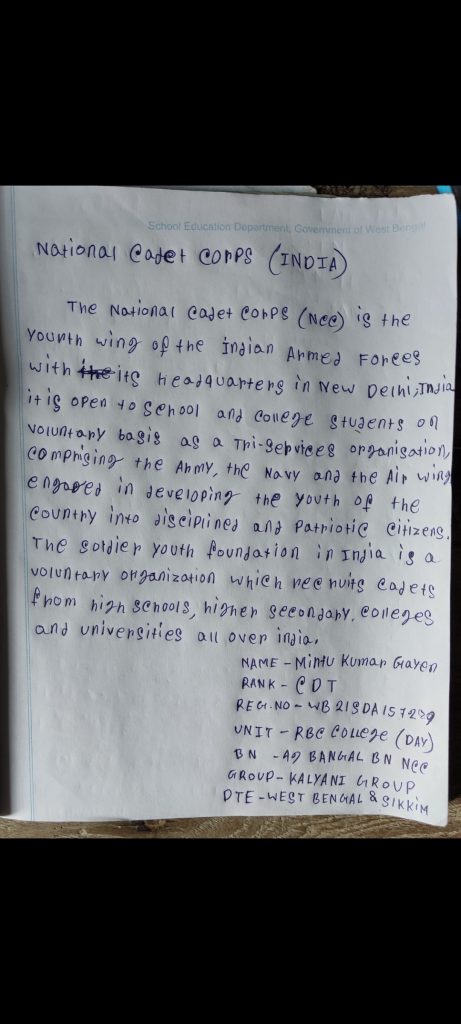 School Education Department, Government of West Bengal
National Cadet Corps (INDIA)
The National Cadet Corps (NCC) is the
yourth wing of the Indian Armed Forces
with its Headquarters in New Delhi, India
it is open to School and College Students on
voluntary basis as a Tri-Services organisation,
comprising the Army, the Navy and the Air wing
engaged in developing the youth of the
country into disciplined and Patriotic citizens.
The soldier youth foundation in India is a
voluntary organization which recruits cadets
from high schools, higher secondary, colleges
and universities all over india.
NAME - Mintu Kumar Gayen
RANK - CDT
REG.NO - WB21SDA157299
UNIT - RBC College (DAY)
BN - BANGAL BN NCC
GROUP - KALYANI GROUP
DTE - WEST BENGAL & SIKKIM